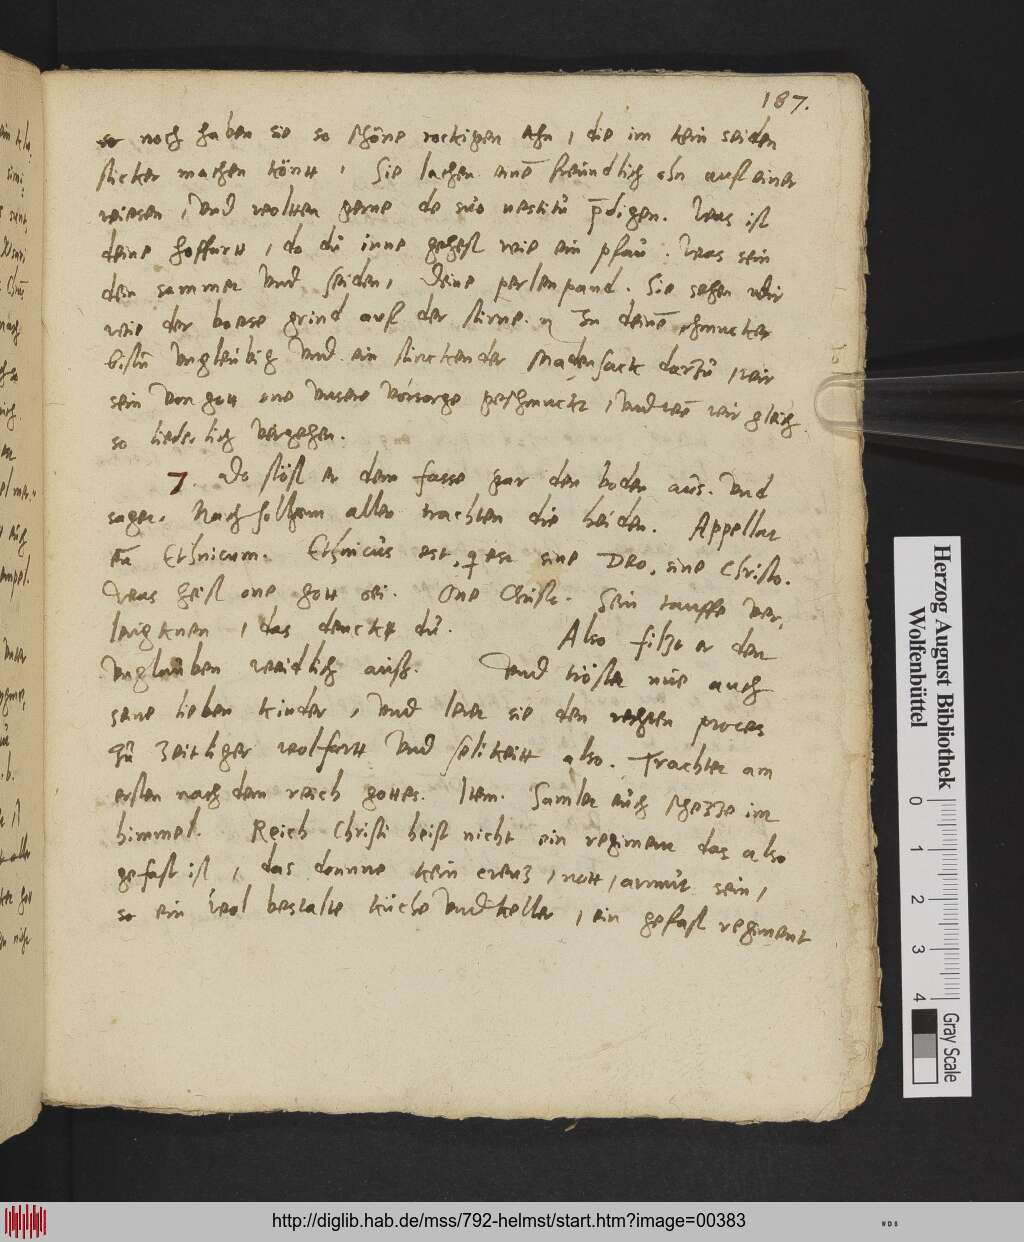 187.
so noch haben sie so schöne rockigen ahn, die im kein seiden
sticker machen köntt, Sie lachen eine̅ freundlich ahn auf einer
wiesen, Vnd woltten gerne de suo vestitu p̅digen. Was ist
deine hoffartt, do du inne gehest wie ein pfau. Was sein
dein sammet Vnd seiden, Deine perlenpand. Sie sehen wir
wie der boese grind auf der stirne. In deine̅ schmucker
bistu Vngleubig Vnd ein stinckender Madensack darzu, wir
sein Von gott one Vnsere Vorsorge geschmuckt, Vnd wir gleich
so liederlich Vergehen.
7. Do stöst er dem fasse gar den boden aus. Vnd
sagen. Nach sollchem allen trachten die heiden. Appellat
eu̅ Ethnicum. Ethnicus est, q est sine Deo, sine Christo.
Was heist one gott sei. One Christ. Sein tauffe Ver,
leugknen, das denckt du. Also filzt er den
Vnglauben weidlich auss. Vnd tröstet nue auch
seine lieben kinder, Vnd leret sie den rechten proces
zu zeittliger wolfartt Vnd selikeitt also. Trachtet am
ersten nach dem reich gottes. Item. Samlet euch schezze im
himmel. Reich Christi heist nicht ein regiment das also
gefast ist, das donne kein creuz, nott, armut sein,
so ein Wol bestalte küche Vnd keller, ein gefast regiment
Herzog August Bibliothek
Wolfenbüttel
0 1 2 3 4
Gray Scale
http://diglib.hab.de/mss/792-helmst/start.htm?image=00383